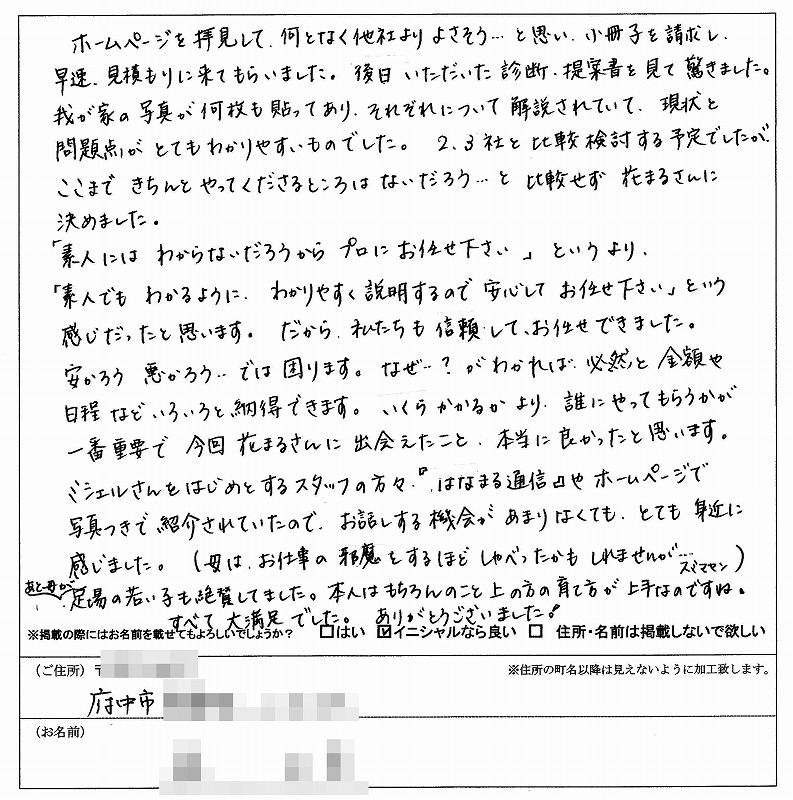 ホームページを拝見して、何となく他社よりよさそう…と思い、小冊子を請求し、
早速、見積もりに来てもらいました。後日いただいた診断、提案書を見て驚きました。
我が家の写真が何枚も貼ってあり、それぞれについて解説されていて、現状と
問題点がとてもわかりやすいものでした。2、3社と比較検討する予定でしたが、
ここまできちんとやってくださるところはないだろう…と比較せず花まるさんに
決めました。
「素人にはわからないだろうからプロにお任せ下さい」というより、
「素人でもわかるように、わかりやすく説明するので安心してお任せ下さい」という
感じだったと思います。だから、私たちも信頼して、お任せできました。
安かろう悪かろう…では困ります。なぜ…?がわかれば、必然と金額や
日程などいろいろと納得できます。いくらかかるかより、誰にやってもらうかが
一番重要で今回花まるさんに出会えたこと、本当に良かったと思います。
ミシェルさんをはじめとするスタッフの方々、『はなまる通信』やホームページで
写真つきで紹介されていたので、お話しする機会があまりなくても、とても身近に
感じました。(母は、お仕事の邪魔をするほどしゃべったかもしれませんが…スミマセン)
あと母が足場の若い子も絶賛してました。本人はもちろんのこと上の方の育て方が上手なのですね。
すべて大満足でした。ありがとうございました!
※掲載の際にはお名前を載せてもよろしいでしょうか? □はい ☑イニシャルなら良い □ 住所・名前は掲載しないで欲しい
(ご住所)〒 ※住所の町名以降は見えないように加工致します。
府中市
(お名前)